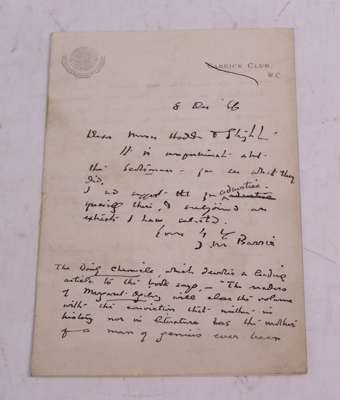 GARRICK CLUB
W.C.
8 Dec 96
Dear Messrs Hodder & Stighton
It is unfortunate about
the Scotsman - for see what they
did.
I wd suggest that for advertise-
quoting there, I enclosed an
extract I have selected.
Yours
J M Barrie
The Daily Chronicle, which devotes a leading
article to the book says, - "The readers
of Margaret Ogilvy will close the volume
with the conviction that neither in
history nor in literature has the mother
of a man of genius ever been